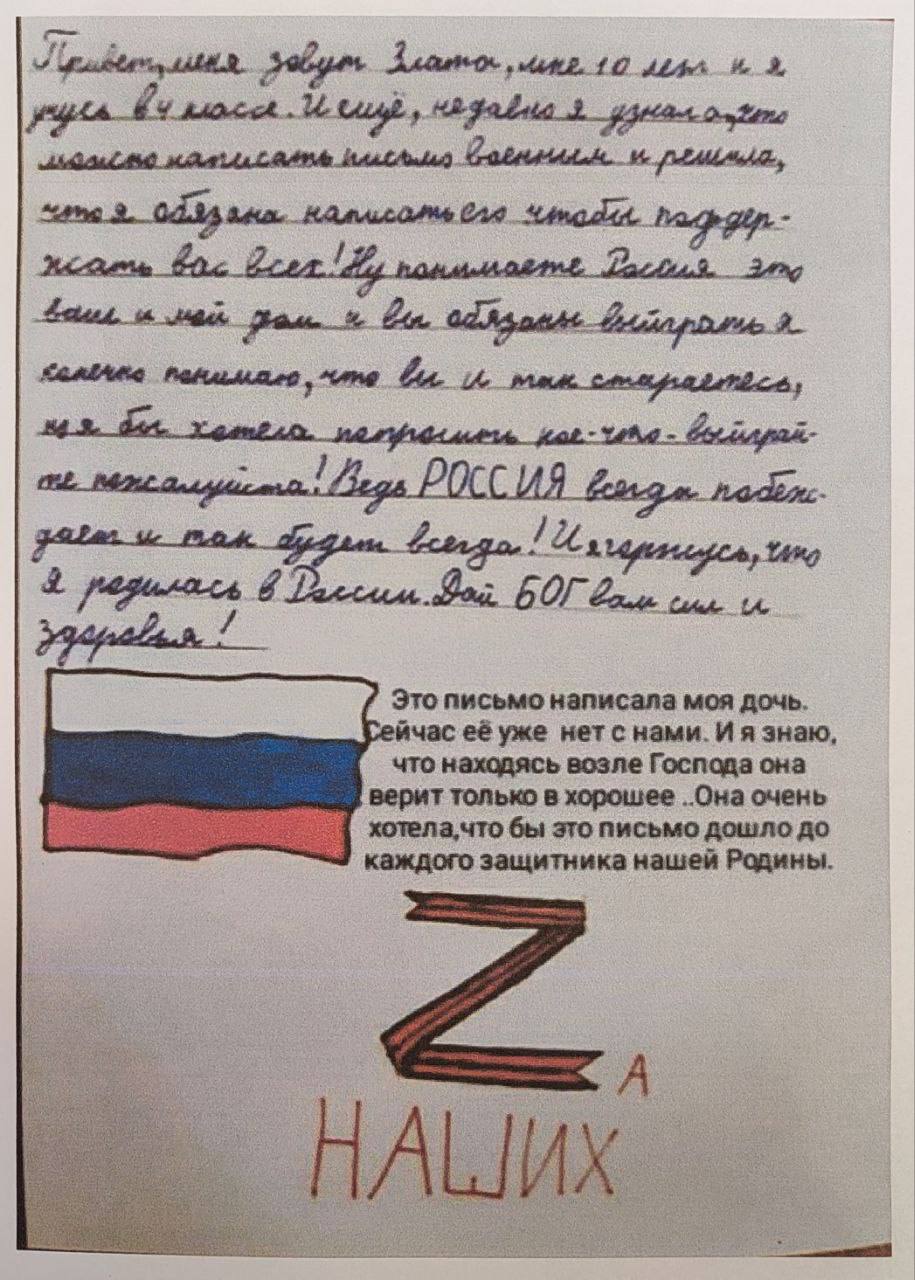 Привет, меня зовут Злата, мне 10 лет и я
учусь в 4 классе. И ещё, недавно я узнала, что
можно написать письмо военным и решила,
что я обязана написать его чтобы поддер-
жать вас всех! Ну понимаете Россия это
ваш и мой дом и вы обязаны выйграть я
конечно понимаю, что вы и так стараетесь,
я бы хотела попросить кое-что-выйграй-
те пожалуйста! Ведь РОССИЯ всегда побеж-
дает и так будет всегда! И я горжусь, что
я родилась в России. Дай БОГ вам сил и
здоровья!
Это письмо написала моя дочь.
Сейчас её уже нет с нами. И я знаю,
что находясь возле Господа она
верит только в хорошее ..Она очень
хотела,что бы это письмо дошло до
каждого защитника нашей Родины.
Zа
НАШИХ